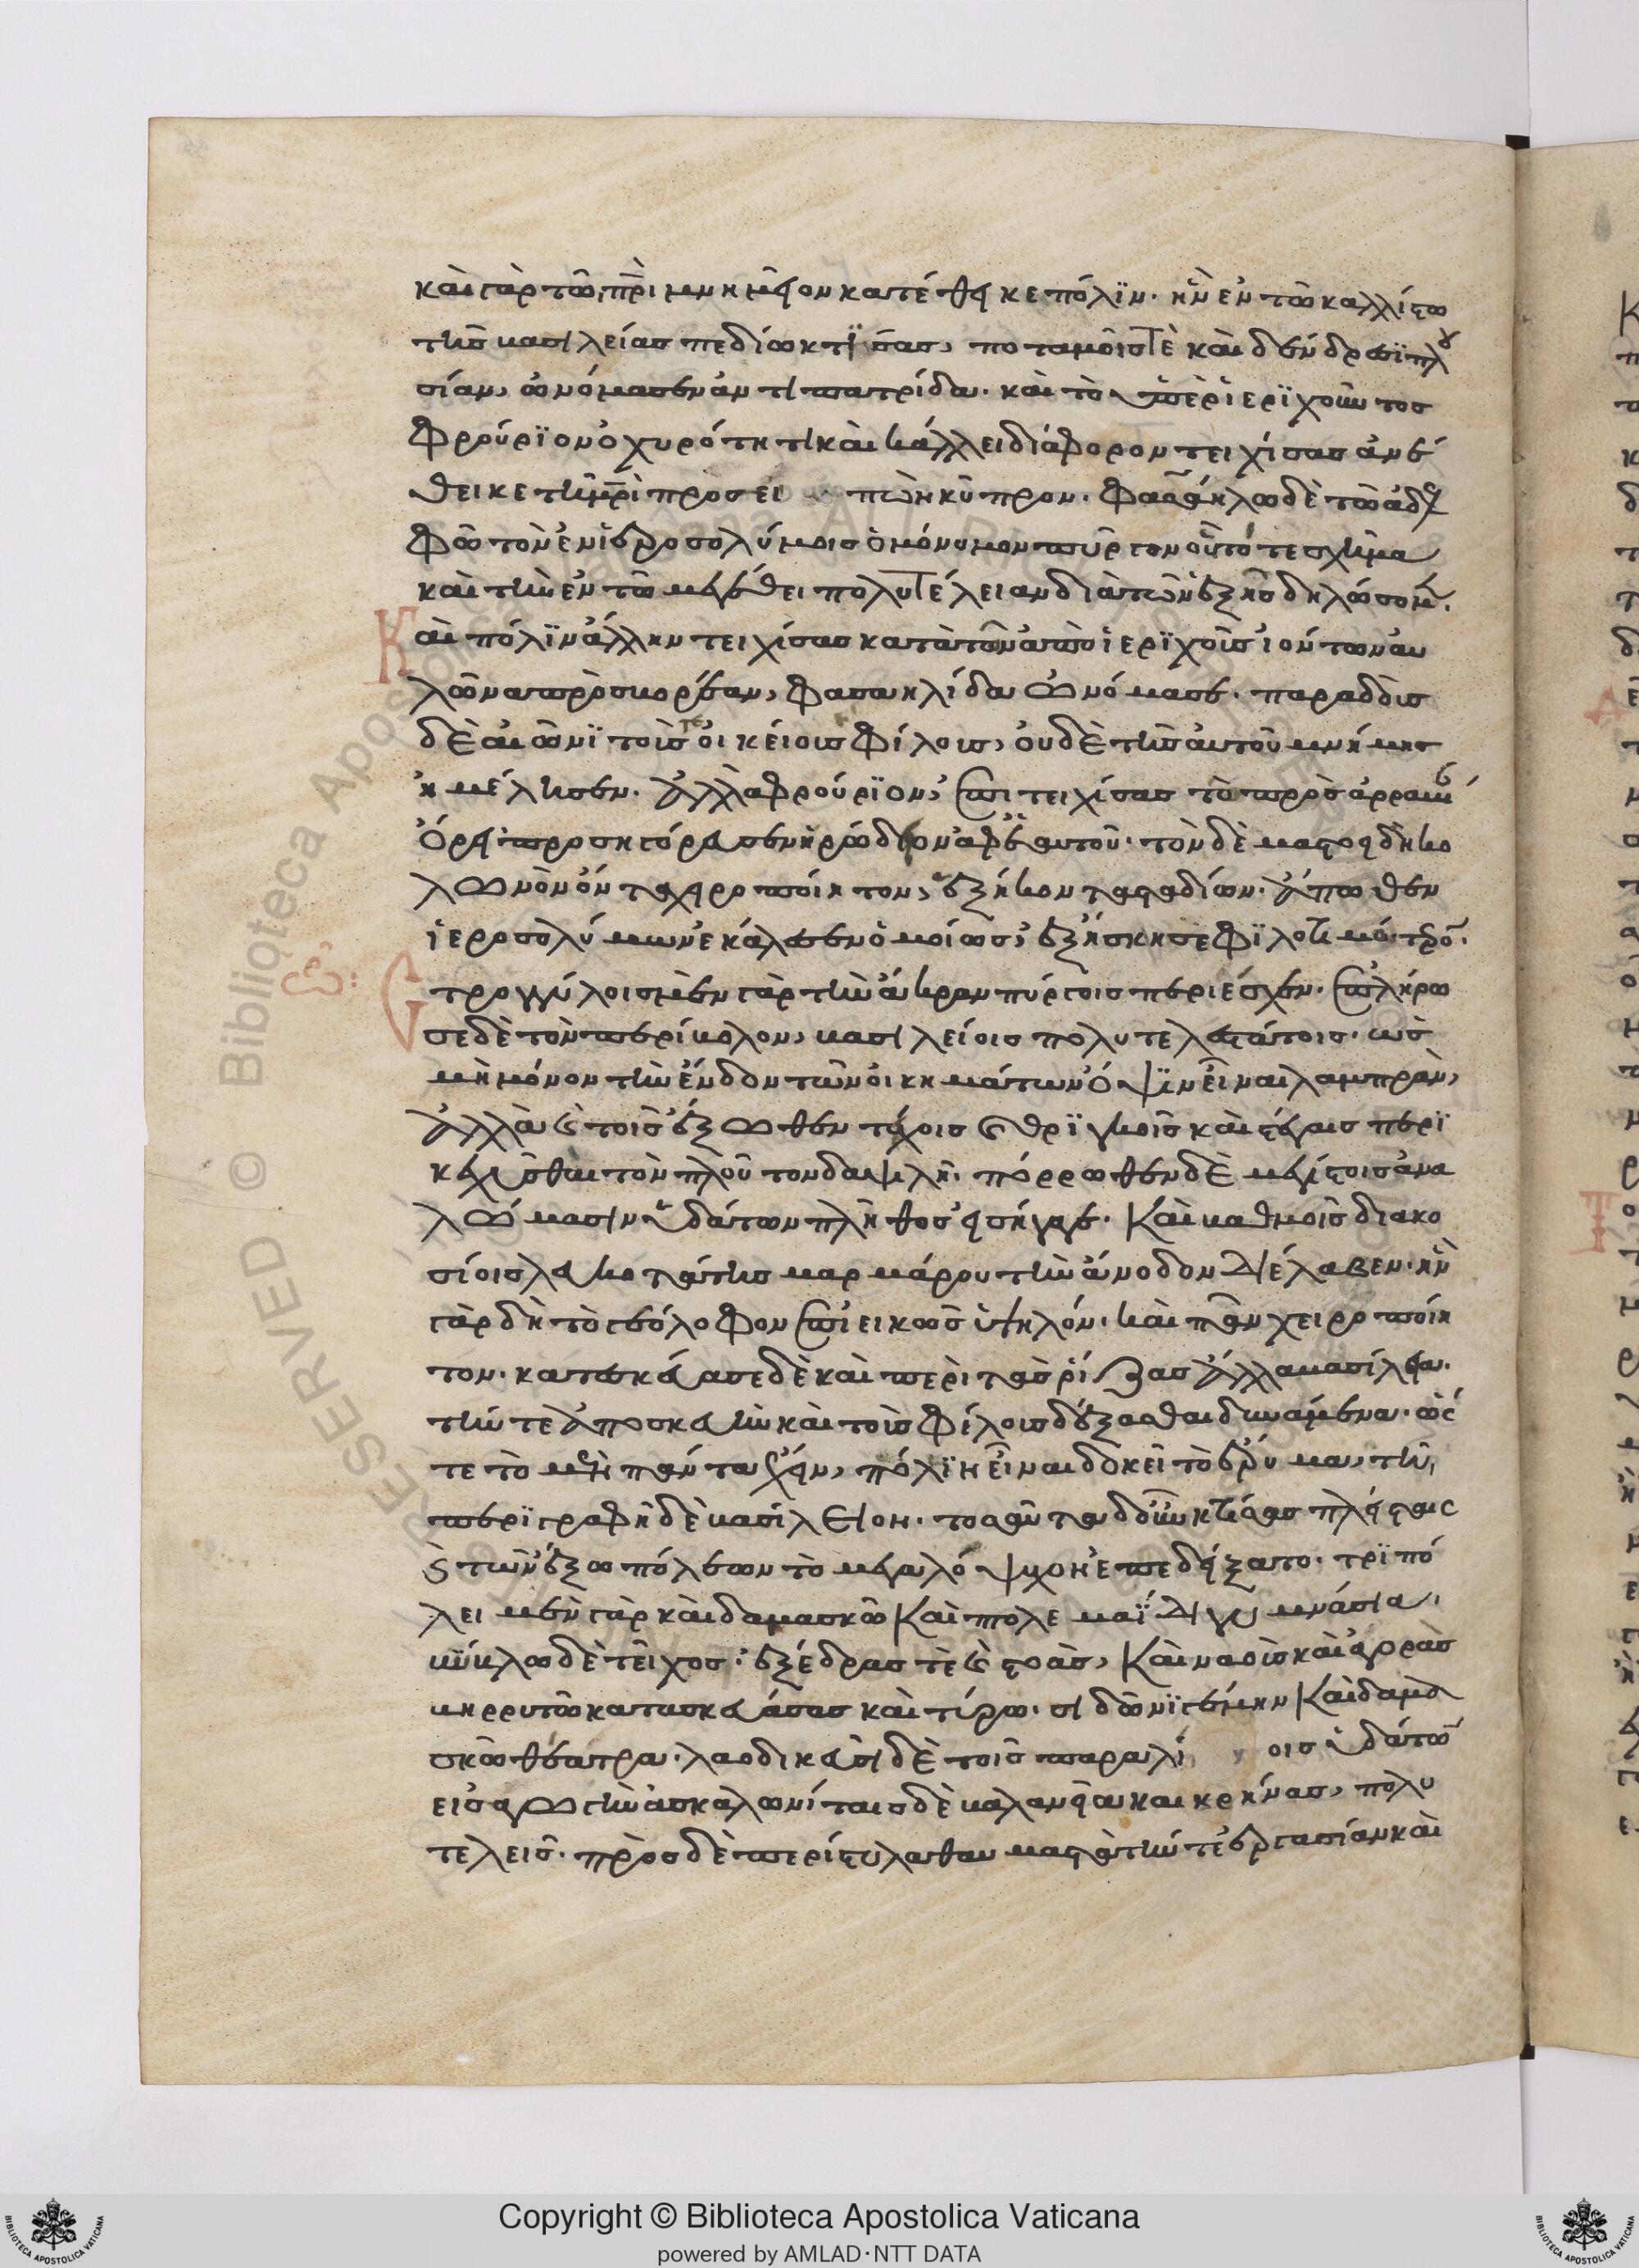 καὶ γὰρ τῶ πρὶ μνημεῖον κατέθηκε πόλϊν· ἣν ἐν τῶ καλλίστω
τῆς βασιλείας πεδίω κτίσας, ποταμοῖς τὲ καὶ δένδρεσϊ πλου
σίαν, ὠνόμασεν ἀντιπατρίδα· καὶ τὸ ὑπὲρ ἱερϊχοῦντος
φρούρϊον ὀχυρότητι καὶ κάλλει διάφορον τειχίσας ἀνέ
θεικε τῆ μρὶ προσει πὼν κύπρον. φασαήλω δὲ τῶ ἀδελ
φῶ τὸν ἐν ἱεροσολύμοις ὁμόνυμον πύργον οὗ τό τε σχῆμα
καὶ τὴν ἐν τῶ μεγέθει πολυτέλειαν διὰ τῶν ἑξῆς δηλώσομεν.
Καὶ πόλϊν ἄλλην τειχίσας κατὰ τὸν ἀπὸ ἱερϊχοῦς ἰόντων αυ
λῶνα πρὸς βορέαν, φασαηλίδα ὠνόμασε. παραδοὺς
δὲ αἰῶνϊ τούς τε οἰκείοις φίλοις, οὐδὲ τῆς αὐτοῦ μνήμης
ἠμέλησεν. ἀλλὰ φρούρϊον, ἐπιτειχίσας τὸ πρὸς ἀρραβί
ὄρει προσηγόρευσεν ἡρώδιον ἀφ' ἑαυτοῦ· τὸν δὲ μαστοειδῆ κο
λωνὸν ὄντα χειροποίητον, ἑξήκοντα σταδίων ἄπωθεν
ἱεροσολύμων ἐκάλεσεν ὁμοίως, ἐξήσκησε φϊλοτιμότρον·
Στρογγύλοις μὲν γὰρ τὴν ἄκραν πύργοις περιέσχεν. ἐπλήρω
σε δὲ τὸν περίβολον, βασιλείοις πολυτελεστάτοις· ὡς
μὴ μόνον τὴν ἔνδον τῶν οἰκημάτων ὄψϊν εἶναι λαμπρὰν,
ἀλλὰ καὶ τοῖς ἔξωθεν τείχοις καὶ θρϊγκοῖς καὶ στέγαις περϊ
κεχύσθαι τὸν πλοῦτον δαψιλῆ· πόρρωθεν δὲ μεγίστοις ἀνα
λώμασιν ὑδάτων πλῆθος εἰσήγαγε. Καὶ βαθμοῖς διακο
σίοις λευκοτάτης μαρμάρου τὴν ἄνοδον διέλαβεν· ἦν
γὰρ δὴ τὸ γεώλοφον ἐπιεικῶς ὑψηλόν· καὶ πᾶν χειροποίη
τον. κατεσκεύασε δὲ καὶ περὶ τὰς ῥίζας ἄλλα βασίλεια.
τήν τε ἀποσκευὴν καὶ τοὺς φίλους δέξασθαι δυνάμενα. ὥς
τε τὸ μὲν πάντα ἔχειν, πόλϊν εἶναι δοκεῖ τὸ ἔρυμα, τῆ
περϊγραφῆ δὲ βασίλειον. τοσαῦτα δ' οὖν κτίσας πλείσταις
καὶ τῶν ἔξω πόλεων τὸ μεγαλόψυχον ἐπεδείξατο. τρϊπό
λει μὲν γὰρ καὶ δαμασκῶ καὶ πτολεμαΐδι γυμνάσια.
κύκλω δὲ τεῖχος. ἐξέδρας τὲ καὶ στοὰς, καὶ ναοὺς καὶ ἀγορὰς
βηρρυτῶ κατασκευάσας καὶ τύρω. σιδῶνϊ γε μὴν καὶ δαμα
σκῶ θέατρα. λαοδικεῦσι δὲ τοῖς παραλί οις ὑδάτων
εἰσαγωγὴν ἀσκαλωνίταις δὲ βαλανεῖα καὶ κρήνας, πολυ
τελεῖς· πρὸς δὲ περίστυλα θαυμαστὰ τήν τε ἐργασίαν καὶ